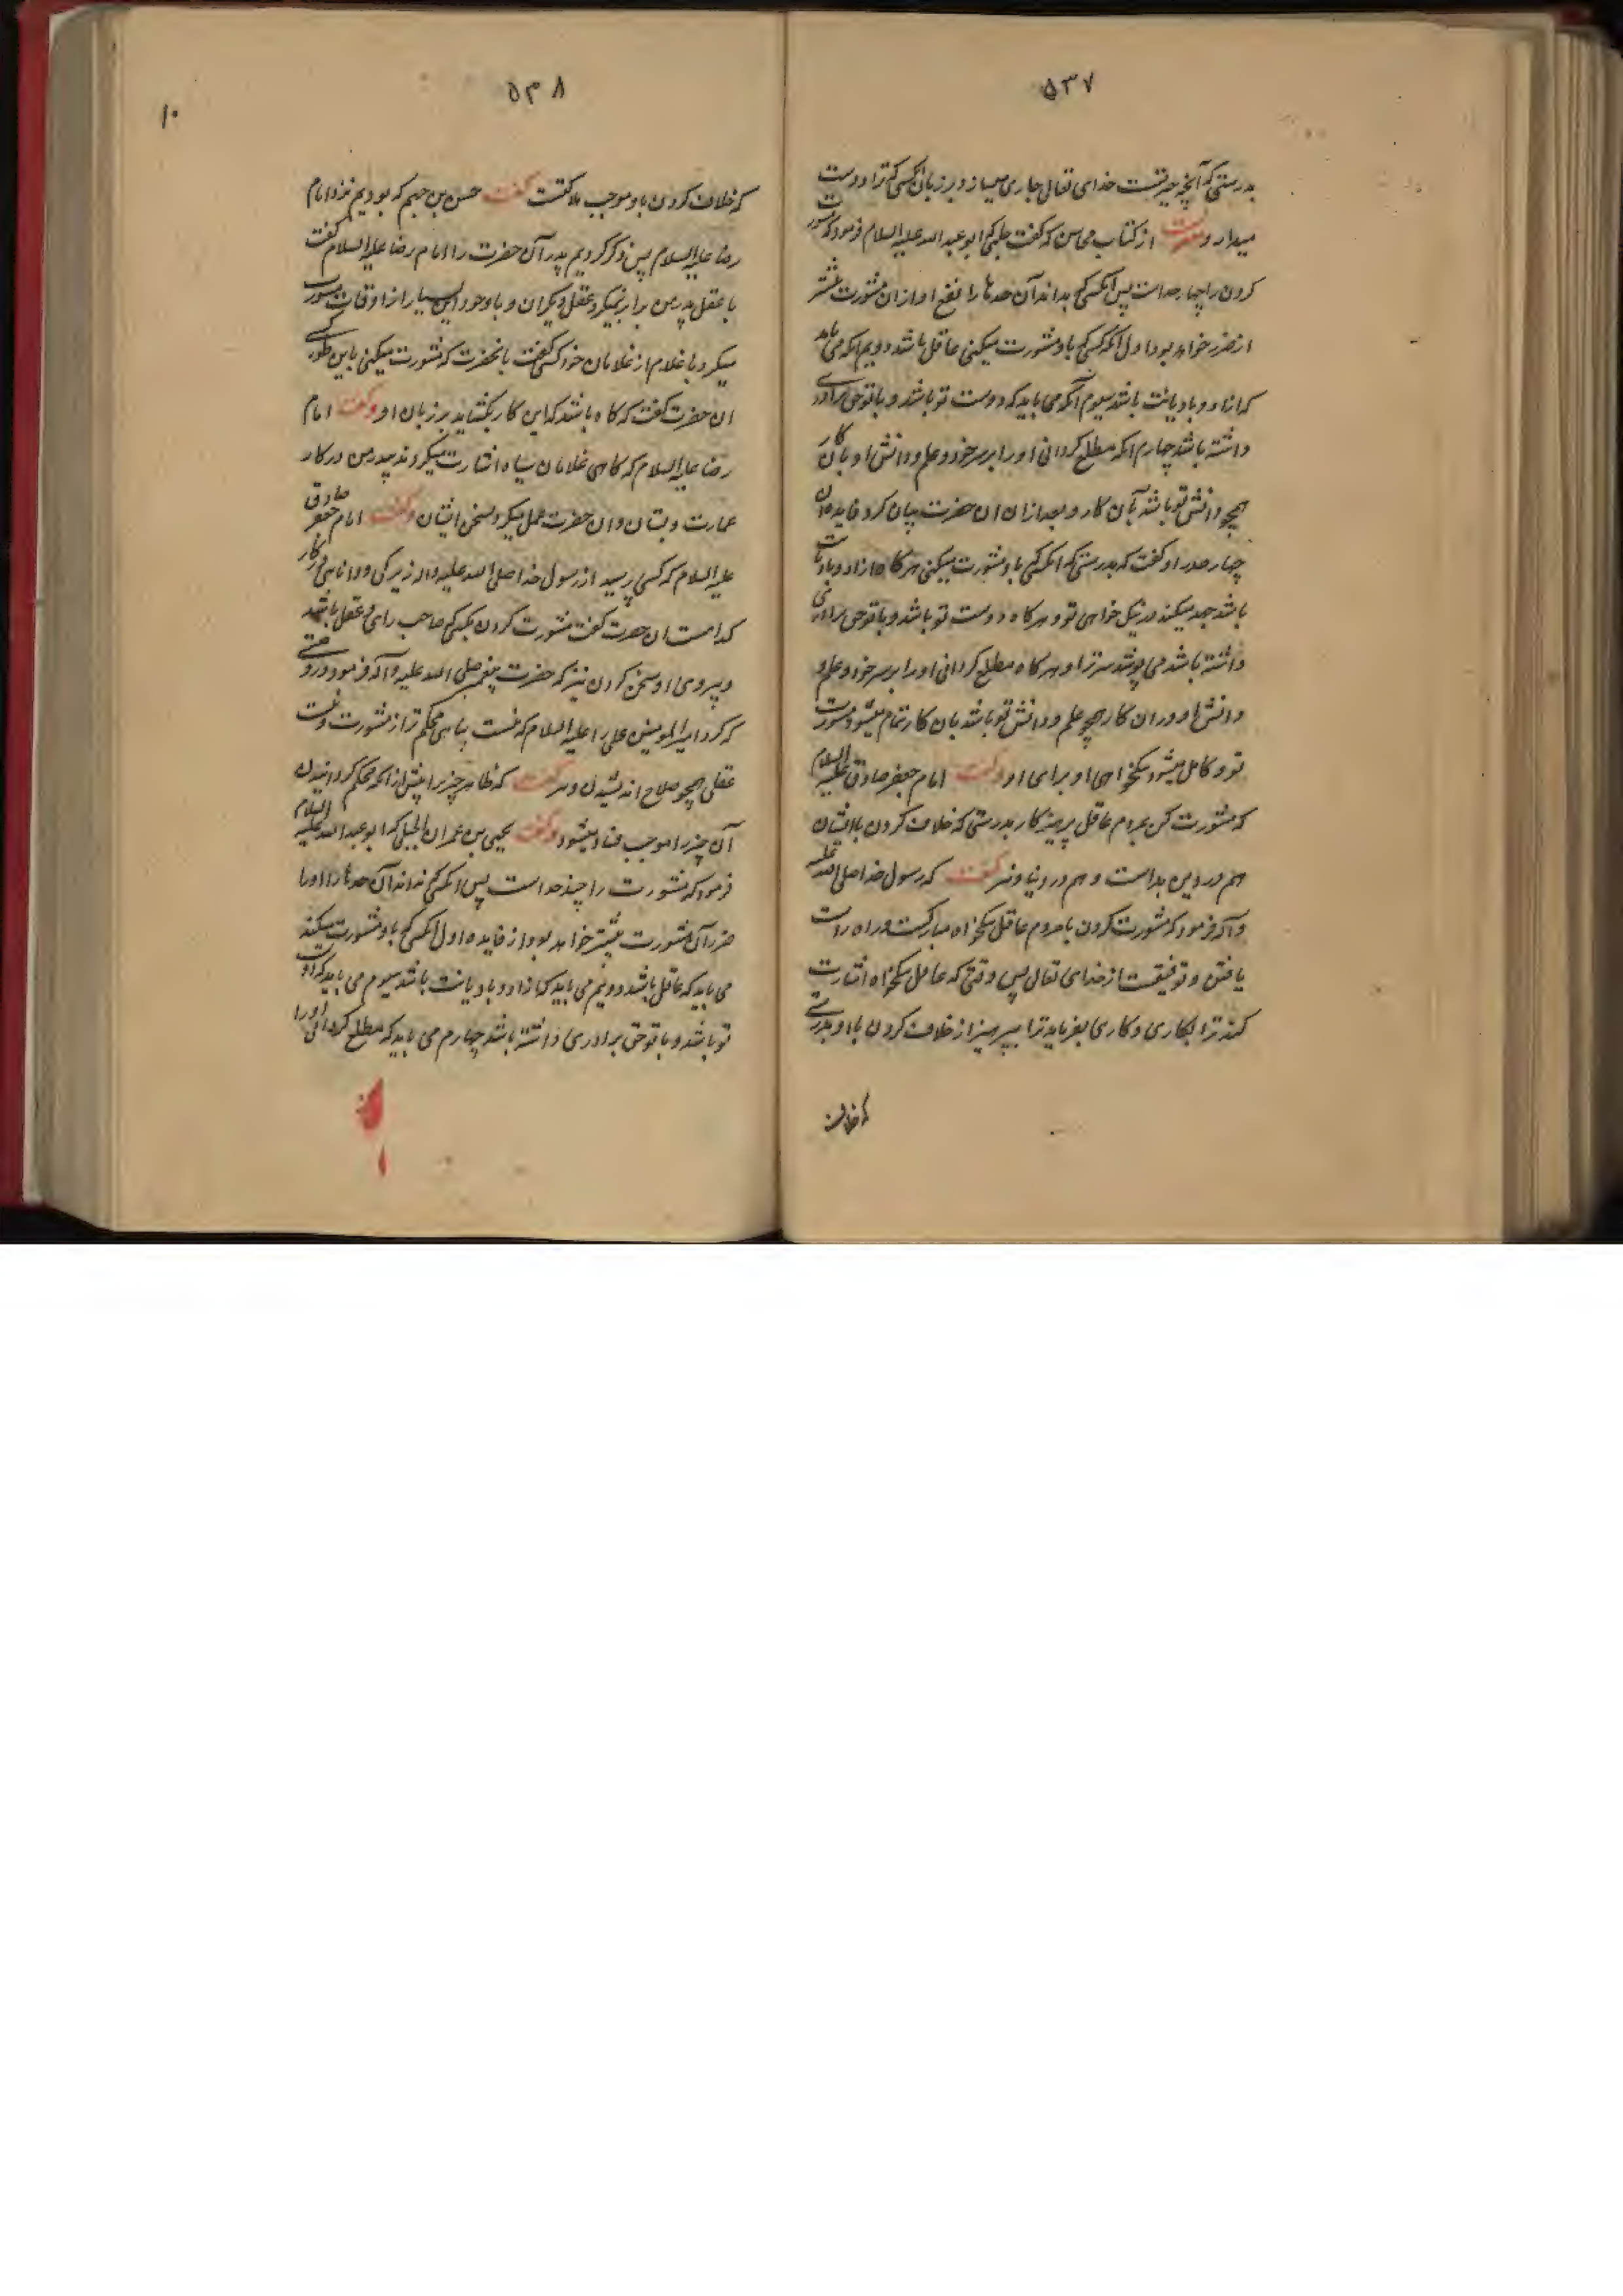 ۵۳۷
بدرستی که آنچه خیر تست خدای تعالی جاری میسازد بر زبان آنکسی که ترا دوست
میدارد از کتاب محاسن که گفت حلبی که ابو عبد الله علیه السلام فرمود که مشورت
کردن را چهار حد است پس آنکسی که بداند آن حدها را نفع او از ان مشورت بیشتر
از ضرر خواهد بود اول آنکه کسی که باو مشورت میکنی عاقل باشد دویم آنکه می باید
که ازاد و با دیانت باشد سیوم آنکه می باید که دوست تو باشد و با تو حق برادری
داشته باشد چهارم آنکه مطلع کردانی او را بر سر خود و علم و دانش او بان کار
همچو دانش تو باشد بآن کار و بعد ازان ان حضرت بیان کرد فایده ان
چهار حد را و گفت که بدرستی که آنکسی که باو مشورت میکنی هر کاه ازاد و با دیانت
باشد جهد میکند در نیکخواهی تو و هر کاه دوست تو باشد و با تو حق برادری
داشته باشد می پوشد سر ترا و هر کاه مطلع کردانی او را بر سر خود و علم و
دانش او در ان کار همچو علم و دانش تو باشد بان کار تمام میشود مشورت
تو و کامل میشود نیکخواهی او برای او و گفت امام جعفر صادق علیه السلام
که مشورت کن بمردم عاقل پرهیزکار بدرستی که خلاف کردن با ایشان
هم در دین بد است و هم در دنیا و نیز گفت که رسول خدا صلی الله علیه
و آله فرمود که مشورت کردن با مردم عاقل نیکخواه مبارکست و راه راست
یافتن و توفیقست از خدای تعالی پس وقتی که عاقل نیکخواه اشارت
کند ترا بکاری و کاری بفرماید ترا بپرهیز از خلاف کردن با او بدرستی
که خلاف
۵۳۸
۱۰
که خلاف کردن باو موجب هلاکتست گفت حسن بن جهم که بودیم نزد امام
رضا علیه السلام پس ذکر کردیم پدر آن حضرت را امام رضا علیه السلام گفت
با عقل پدر من برابر نمیکرد عقل دیکران و با وجود این بسیار از اوقات مشورت
میکرد با غلام از غلامان خود کسی گفت بانحضرت که مشورت میکنی باین طور کسی
ان حضرت گفت که کاه باشد که این کار بکشاید بر زبان او و گفت امام
رضا علیه السلام که کاهی غلامان سیاه اشارت میکردند پدر من در کار
عمارت و بستان و ان حضرت عمل میکرد بسخن ایشان و گفت امام جعفر صادق
علیه السلام که کسی پرسید از رسول خدا صلی الله علیه واله زیرکی و دانایی در کار
کدامست ان حضرت گفت مشورت کردن بکسی که صاحب رای و عقل باشد
و پیروی او سخن کردن نیز که حضرت پیغمبر صلی الله علیه و آله فرمود در وصیتی
که کرد امیر المومنین علی را علیه السلام که نیست پناهی محکم تر از مشورت و نیست
عقلی همچو صلاح اندیشیدن و نیز گفت که ظاهر چیز را پیش از آنکه محکم کردانیدن
آن چیز را موجب فساد میشود و گفت یحیی بن عمران الحبلی که ابو عبد الله علیه السلام
فرمود که مشورت را چند حد است پس آنکسی که نداند آن حدها را او را
ضرر آن مشورت بیشتر خواهد بود از فایده اول آنکسی که باو مشورت میکند
می باید که عاقل باشد دویم می باید که ازاد و با دیانت باشد سیوم می باید که دوست
تو باشد و با تو حق برادری داشته باشد چهارم می باید که مطلع کردانی او را